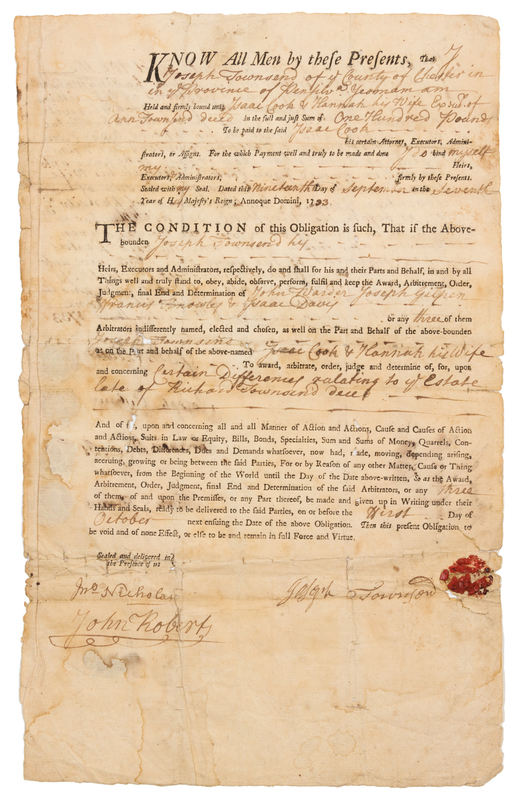 KNOW All Men by these Presents, That I
Joseph Townsend of ye County of Chester in
in ye Province of Pensilva Yeoman am
Held and firmly bound unto Isaac Cook & Hannah his Wife of
Ann Townsend deced in the full and just Sum of One Hundred Pounds
To be paid to the said Isaac Cook
his certain Attorney, Executors, Admini-
strators, or Assigns. For the which Payment well and truly to be made and done I do bind myself
my Heirs,
Executors, Administrators, firmly by these Presents.
Sealed with my Seal. Dated this Nineteenth Day of September in the Seventh
Year of His Majesty's Reign; Annoque Domini, 1733
THE CONDITION of this Obligation is such, That if the Above-
bounden Joseph Townsend his
Heirs, Executors and Administrators, respectively, do and shall for his and their Parts and Behalf, in and by all
Things well and truly stand to, obey, abide, observe, perform, fulfil and keep the Award, Arbitrement, Order,
Judgment, final End and Determination of John Joseph Gilpin
Francis Knowles & Isaac Davis
or any three of them
Arbitrators indifferently named, elected and chosen, as well on the Part and Behalf of the above-bounden
Joseph Townsend
as on the Part and behalf of the above-named Isaac Cook & Hannah his Wife
To award, arbitrate, order, judge and determine of, for, upon
and concerning Certain Differences relating to ye Estate
late of Richard Townsend deced
And of, upon and concerning all and all Manner of Action and Actions, Cause and Causes of Action
and Actions, Suits in Law or Equity, Bills, Bonds, Specialties, Sum and Sums of Money, Quarrels, Con-
tentions, Debts, Differences, Dues and Demands whatsoever, now had, made, moving, depending arising,
accruing, growing or being between the said Parties, For or by Reason of any other Matter, Cause or Thing
whatsoever, from the Beginning of the World until the Day of the Date above-written, So as the Award,
Arbitrement, Order, Judgment, final End and Determination of the said Arbitrators, or any three
of them, of and upon the Premisses, or any Part thereof, be made and given up in Writing under their
Hands and Seals, ready to be delivered to the said Parties, on or before the First Day of
October next ensuing the Date of the above Obligation. Then this present Obligation to
be void and of none Effect, or else to be and remain in full Force and Virtue.
Sealed and delivered in
the Presence of us
Jno Nicholas
Joseph Townsend
John Roberts